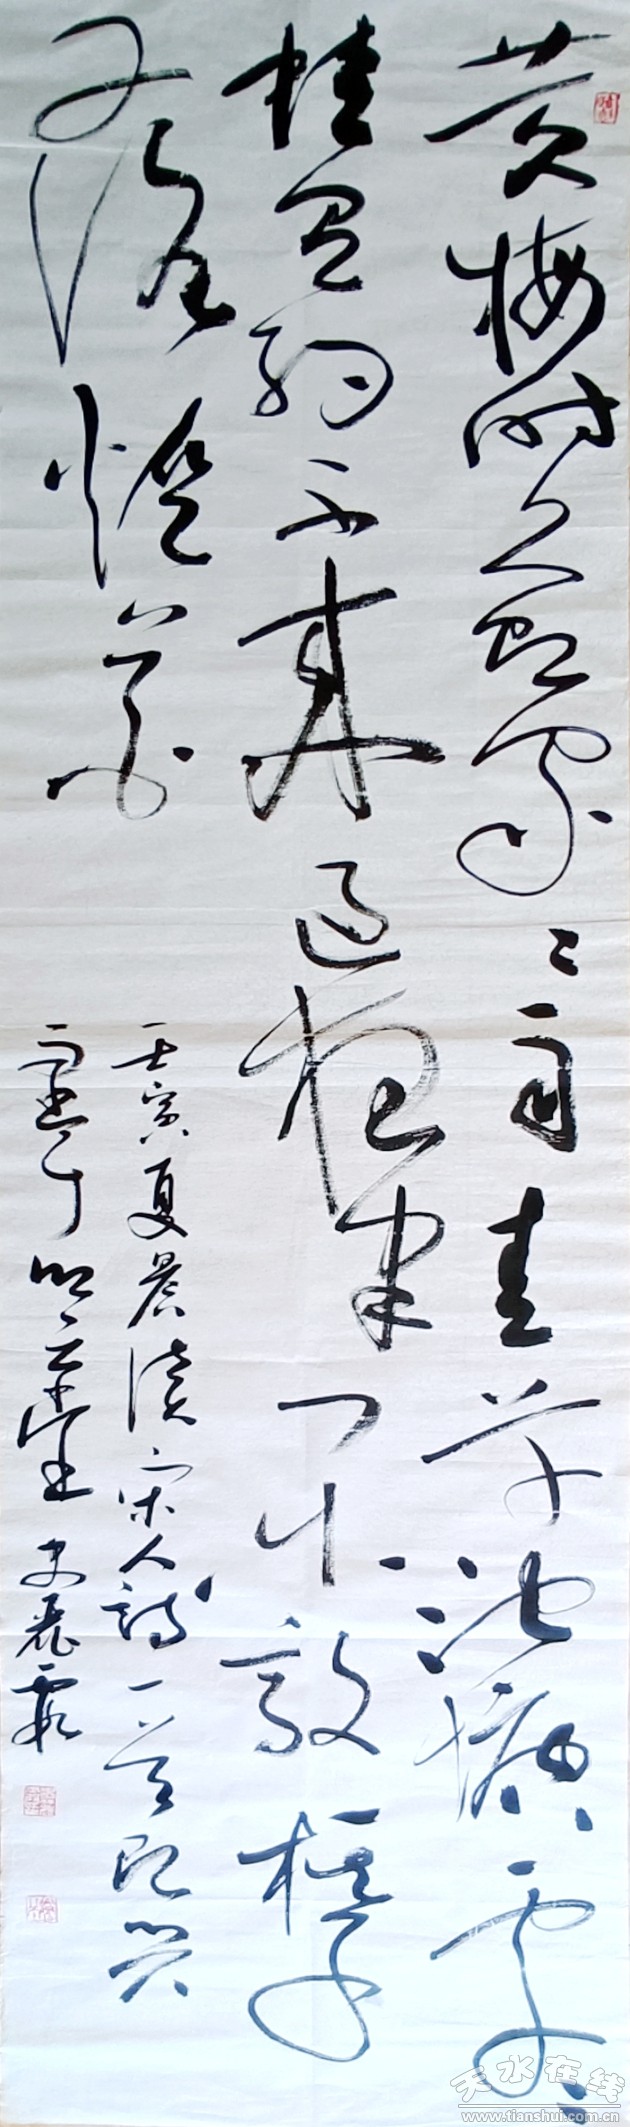 黄梅时节家家雨青草池塘处处
蛙有约不来过夜半闲敲棋子
落灯花
壬寅夏晨读宋人诗一首即兴
书于明月堂史花霞
天水在线
www.tianshui.com.cn